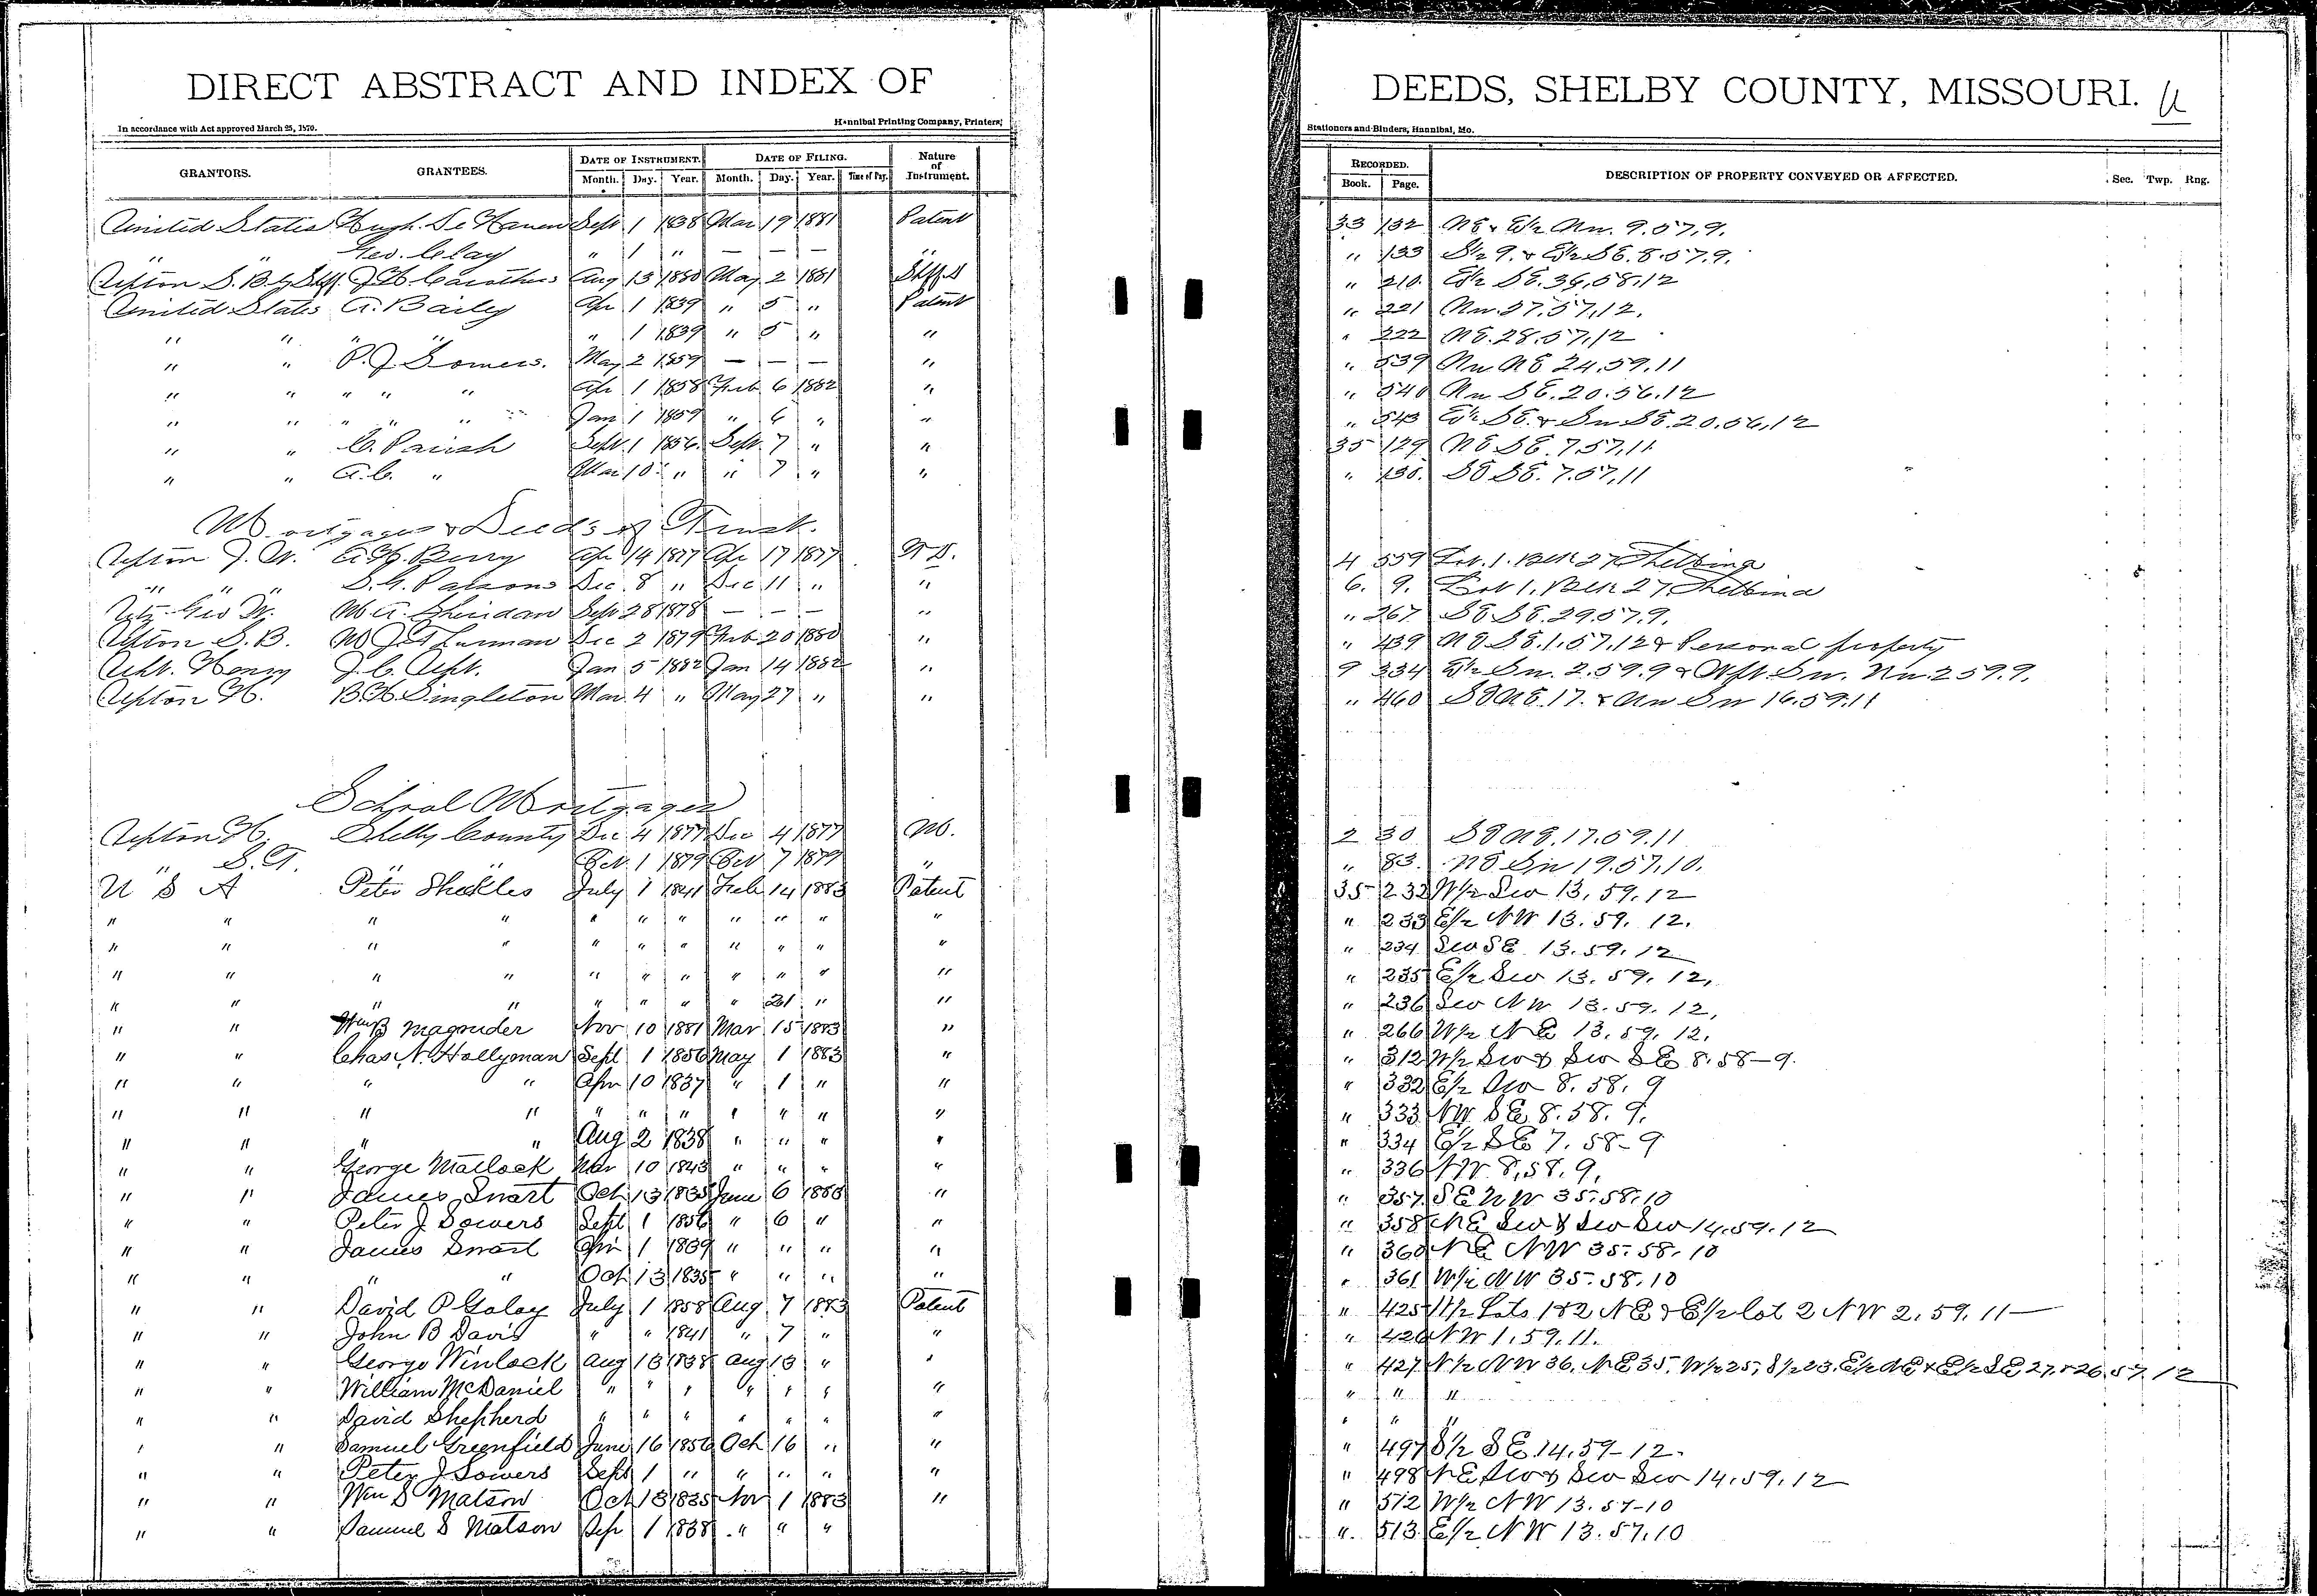 DIRECT ABSTRACT AND INDEX OF DEEDS, SHELBY COUNTY, MISSOURI. U
In accordance with Act approved March 25, 1870. Hannibal Printing Company, Printers, Stationers and Binders, Hannibal, Mo.
GRANTORS. GRANTEES. DATE OF INSTRUMENT. Month. Day. Year. DATE OF FILING. Month. Day. Year. Time of Day. Nature of Instrument. RECORDED. Book. Page. DESCRIPTION OF PROPERTY CONVEYED OR AFFECTED. Sec. Twp. Rng.
United States Hugh De Haven Sept 1 1838 Mar 19 1881 Patent 33 132 NE & E½ Nw. 9.57.9.
" " Geo. Clay " 1 " — — — " " 133 S½ 9. & E½ SE. 8.57.9.
Upton S. B. by Shff. J.H. Carothers Aug 13 1880 May 2 1881 Shff D " 210. E½ SE. 36,58,12
United States A. Baily Apr 1 1839 " 5 " Patent " 221 Nw. 27.57,12.
" " " " " 1 1839 " 5 " " " 222 NE. 28.57,12
" " P. J. Somers. May 2 1859 — — — " " 539 Nw NE 24.59.11
" " " " " Apr 1 1858 Feb 6 1882 " " 540 Nw SE. 20.56.12
" " " " " Jan 1 1859 " 6 " " " 543 E½ SE. & Sw SE. 20.56,12
" " C. Parish Sept. 1 1856. Sept. 7 " " 35 129 NE SE. 7.57,11
" " A. C. " Mar 10 " " 7 " " " 130. SE SE. 7.57,11
Mortgages & Deeds of Trust.
Upton J. W. A. H. Berry Apr 14 1877 Apr 17 1877 T D. 4 559 Lot. 1. Blk 27 Shelbina
" " " S. G. Parsons Dec. 8 " Dec 11 " " 6. 9. Lot 1, Blk 27 Shelbina
Utz Geo W. M. A. Sheridan Sept 28 1878 — — — " " 267 SE SE. 29.57.9.
Upton S. B. Dec 2 1879 Feb 20 1880 " " 439 NE SE. 1.57,12 & Personal property
Upt. Henry J. C. Upt. Jan 5 1882 Jan 14 1882 " 9 334 E½ Sw. 2.59.9 & Sw. Nw. 2 59.9.
Upton H. B. H. Singleton Mar. 4 " May 27 " " " 460 SE NE. 17. & Nw Sw 16.59.11
School Mortgages
Upton H. Shelby County Dec 4 1877 Dec 4 1877 M. 2 30 SE NE. 17.59.11
" S. T. " " Oct. 1 1879 Oct 7 1879 " " 83. NE Sw 19.57,10.
U S A Peter Shekles July 1 1841 Feb 14 1883 Patent 35 232 W½ Sw 13, 59, 12
" " " " " " " " " " " " 233 E½ NW 13. 59. 12.
" " " " " " " " " " " " 234 Sw SE 13. 59. 12
" " " " " " " " " " " " 235 E½ Sw 13. 59. 12,
" " " " " " " " 21 " " " 236 Sw NW 13. 59. 12,
" " Magruder Nov 10 1881 Mar 15 1883 " " 266 W½ NE 13. 59. 12.
" " Chas. N. Hollyman Sept 1 1856 May 1 1883 " " 312 W½ Sw & Sw SE 8. 58–9.
" " " " Apr 10 1837 " 1 " " " 332 E½ Sw 8. 58. 9
" " " " " " " " " " " " 333 NW SE 8. 58. 9.
" " " " Aug 2 1838 " " " " " 334 E½ SE 7. 58–9
" " George Matlock Mar 10 1843 " " " " " 336 NW 8, 58. 9,
" " James Swart Oct 13 1835 June 6 1883 " " 357 SE NW 35.58.10
" " Peter J Sowers Sept 1 1856 " 6 " " " 358 NE Sw & Sw Sw 14.59.12
" " James Swart Apr 1 1839 " " " " " 360 NE NW 35.58.10
" " " " Oct 13 1835 " " " " " 361 W½ NW 35.58.10
" " David P Galay July 1 1858 Aug. 7 1883 Patent " 425 W½ Lots 1&2 NE & E½ lot 2 NW 2, 59, 11—
" " John B Davis " " 1841 " 7 " " " 426 NW 1, 59. 11.
" " George Winlock Aug 13 1838 Aug 13 " " " 427 N½ NW 36. NE 35. W½ 25, S½ 23. E½ NE & E½ SE 27. & 26. 57. 12
" " William McDaniel " " " " " " " " " "
" " David Shepherd " " " " " " " " " "
" " Samuel Greenfield June 16 1856 Oct 16 " " " 497 S½ SE 14.59–12.
" " Peter J Sowers Sept 1 " " " " " " 498 NE Sw & Sw Sw 14.59.12
" " Wm S Matson Oct 13 1835 Nov 1 1883 " " 512 W½ NW 13. 57–10
" " Samuel S Matson Sep 1 1838 " " " " 513 E½ NW 13. 57. 10